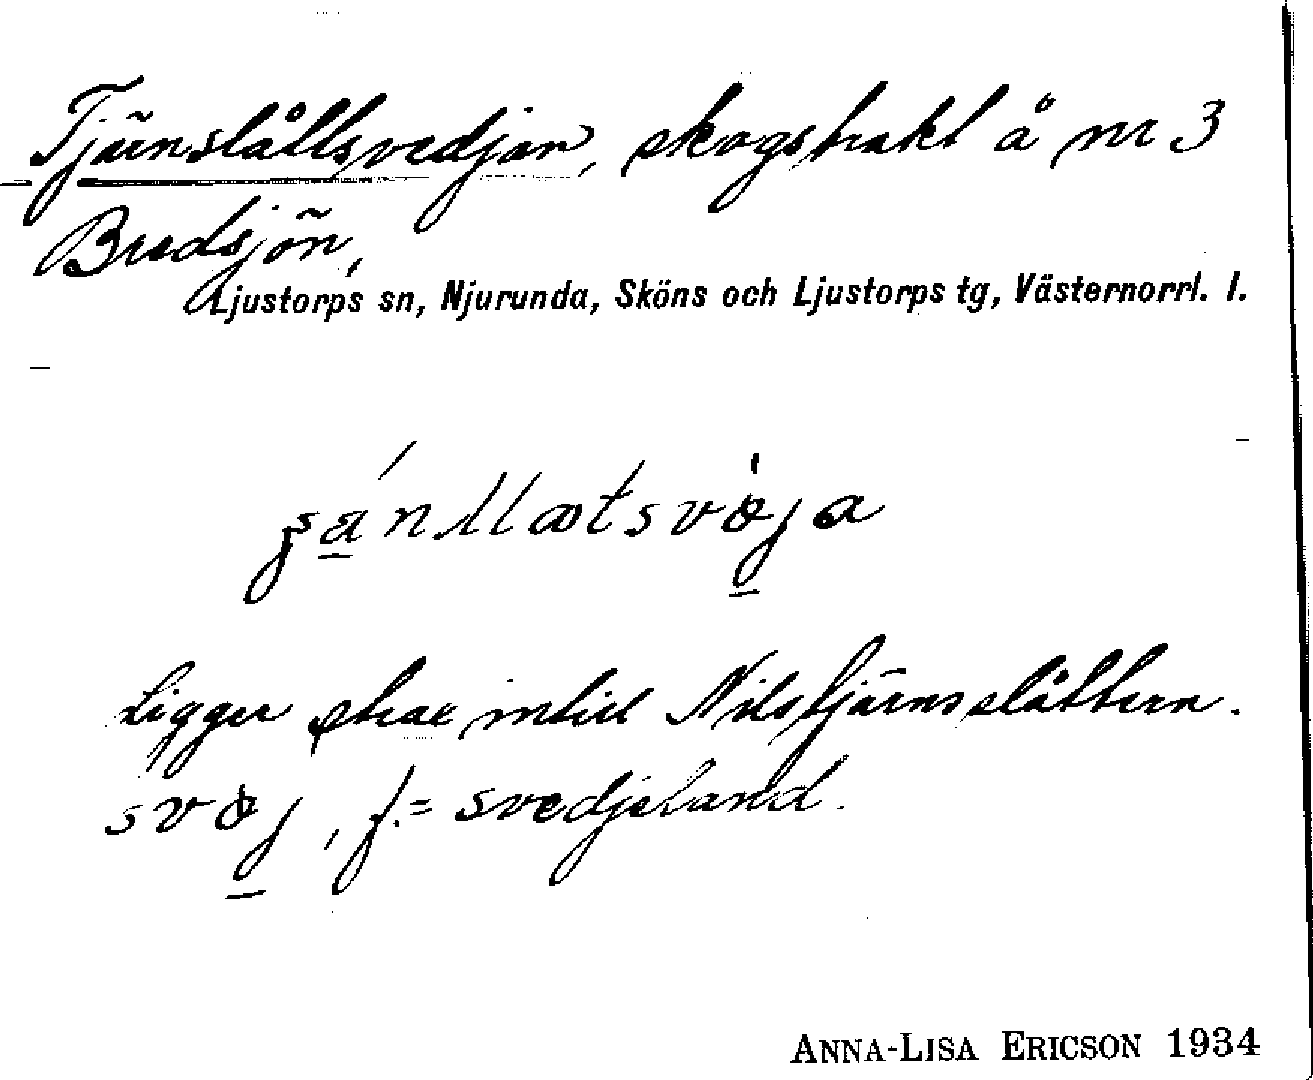 Tjärnslåttsvedjan, skogstrakt å nr 3
Bredsjön,
Ljustorps sn, Njurunda, Sköns och Ljustorps tg, Västernorrl. l.
Ligger strax intill Nilstjärnsslåttern.
f. = svedjeland.
ANNA-LISA ERICSON 1934